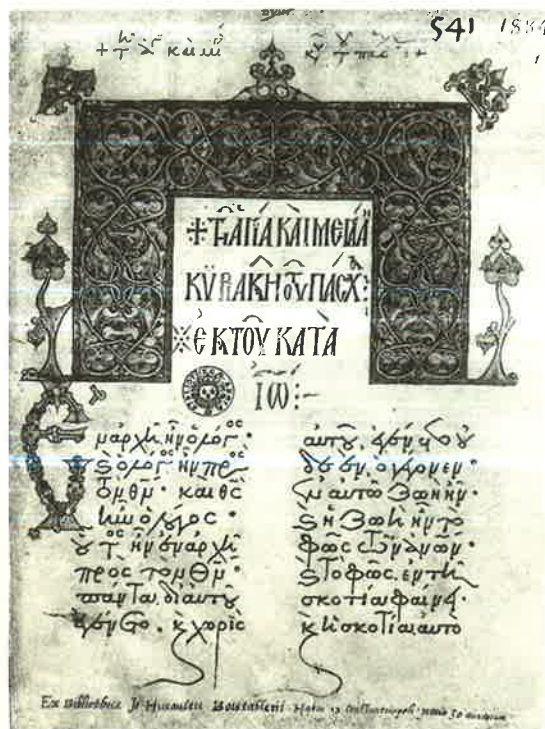 541
+ ΤΗ ἉΓΙΑ ΚΑΙ ΜΕΓΑΛ
ΚΥΡΙΑΚΗ ΤΟΥ ΠΑΣΧ:
ἘΚ ΤΟΥ ΚΑΤΑ
ἸΩ:–
Ἐν ἀρχῆ ἦν ὁ λόγος·
ϗ ὁ λόγος ἦν πρὸς
τὸν θν· καὶ θς
ἦν ὁ λόγος·
οὗτος ἦν ἐν ἀρχῆ
πρὸς τὸν θν·
πάντα δι αὐτοῦ
ἐγένετο· ϗ χωρὶς
αὐτοῦ ἐγένετο οὐ
δὲ ἕν ὃ γέγονεν·
ἐν αὐτῶ ζωὴ ἦν·
ϗ ἡ ζωὴ ἦν τὸ
φῶς τῶν ἀνων·
ϗ τὸ φῶς ἐν τῆ
σκοτία φαίνει·
ϗ ἡ σκοτία αὐτὸ
Ex Bibliotheca Jo. Huraultii Boistallerii